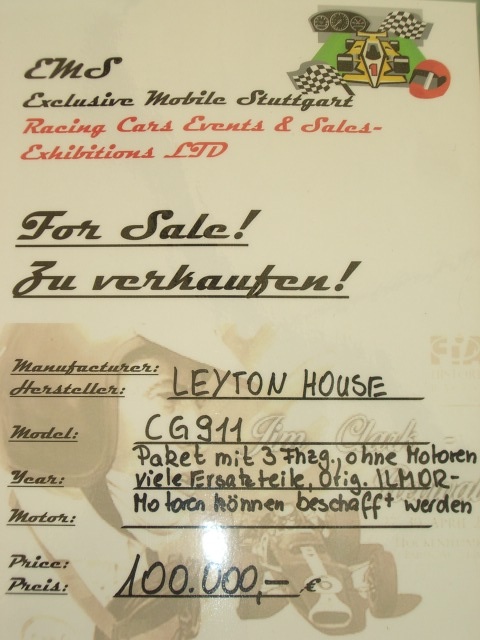 EMS
Exclusive Mobile Stuttgart
Racing Cars Events & Sales-
Exhibitions LTD
For Sale!
Zu verkaufen!
Manufacturer:
Hersteller: LEYTON HOUSE
Model: CG911
Paket mit 3 Fhzg, ohne Motoren
Year: viele Ersatzteile, Otig. ILMOR-
Motoren können beschafft werden
Motor:
Price:
Preis: 100.000,- €
Jim Clark -
FIA
1